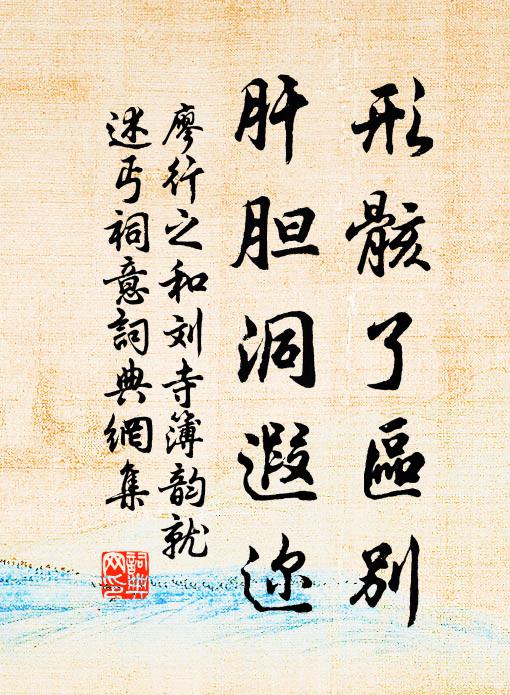 形骸了區別
肝胆洞遐迩
廖行之和刘寺簿韵就
述丐祠意詞典網集